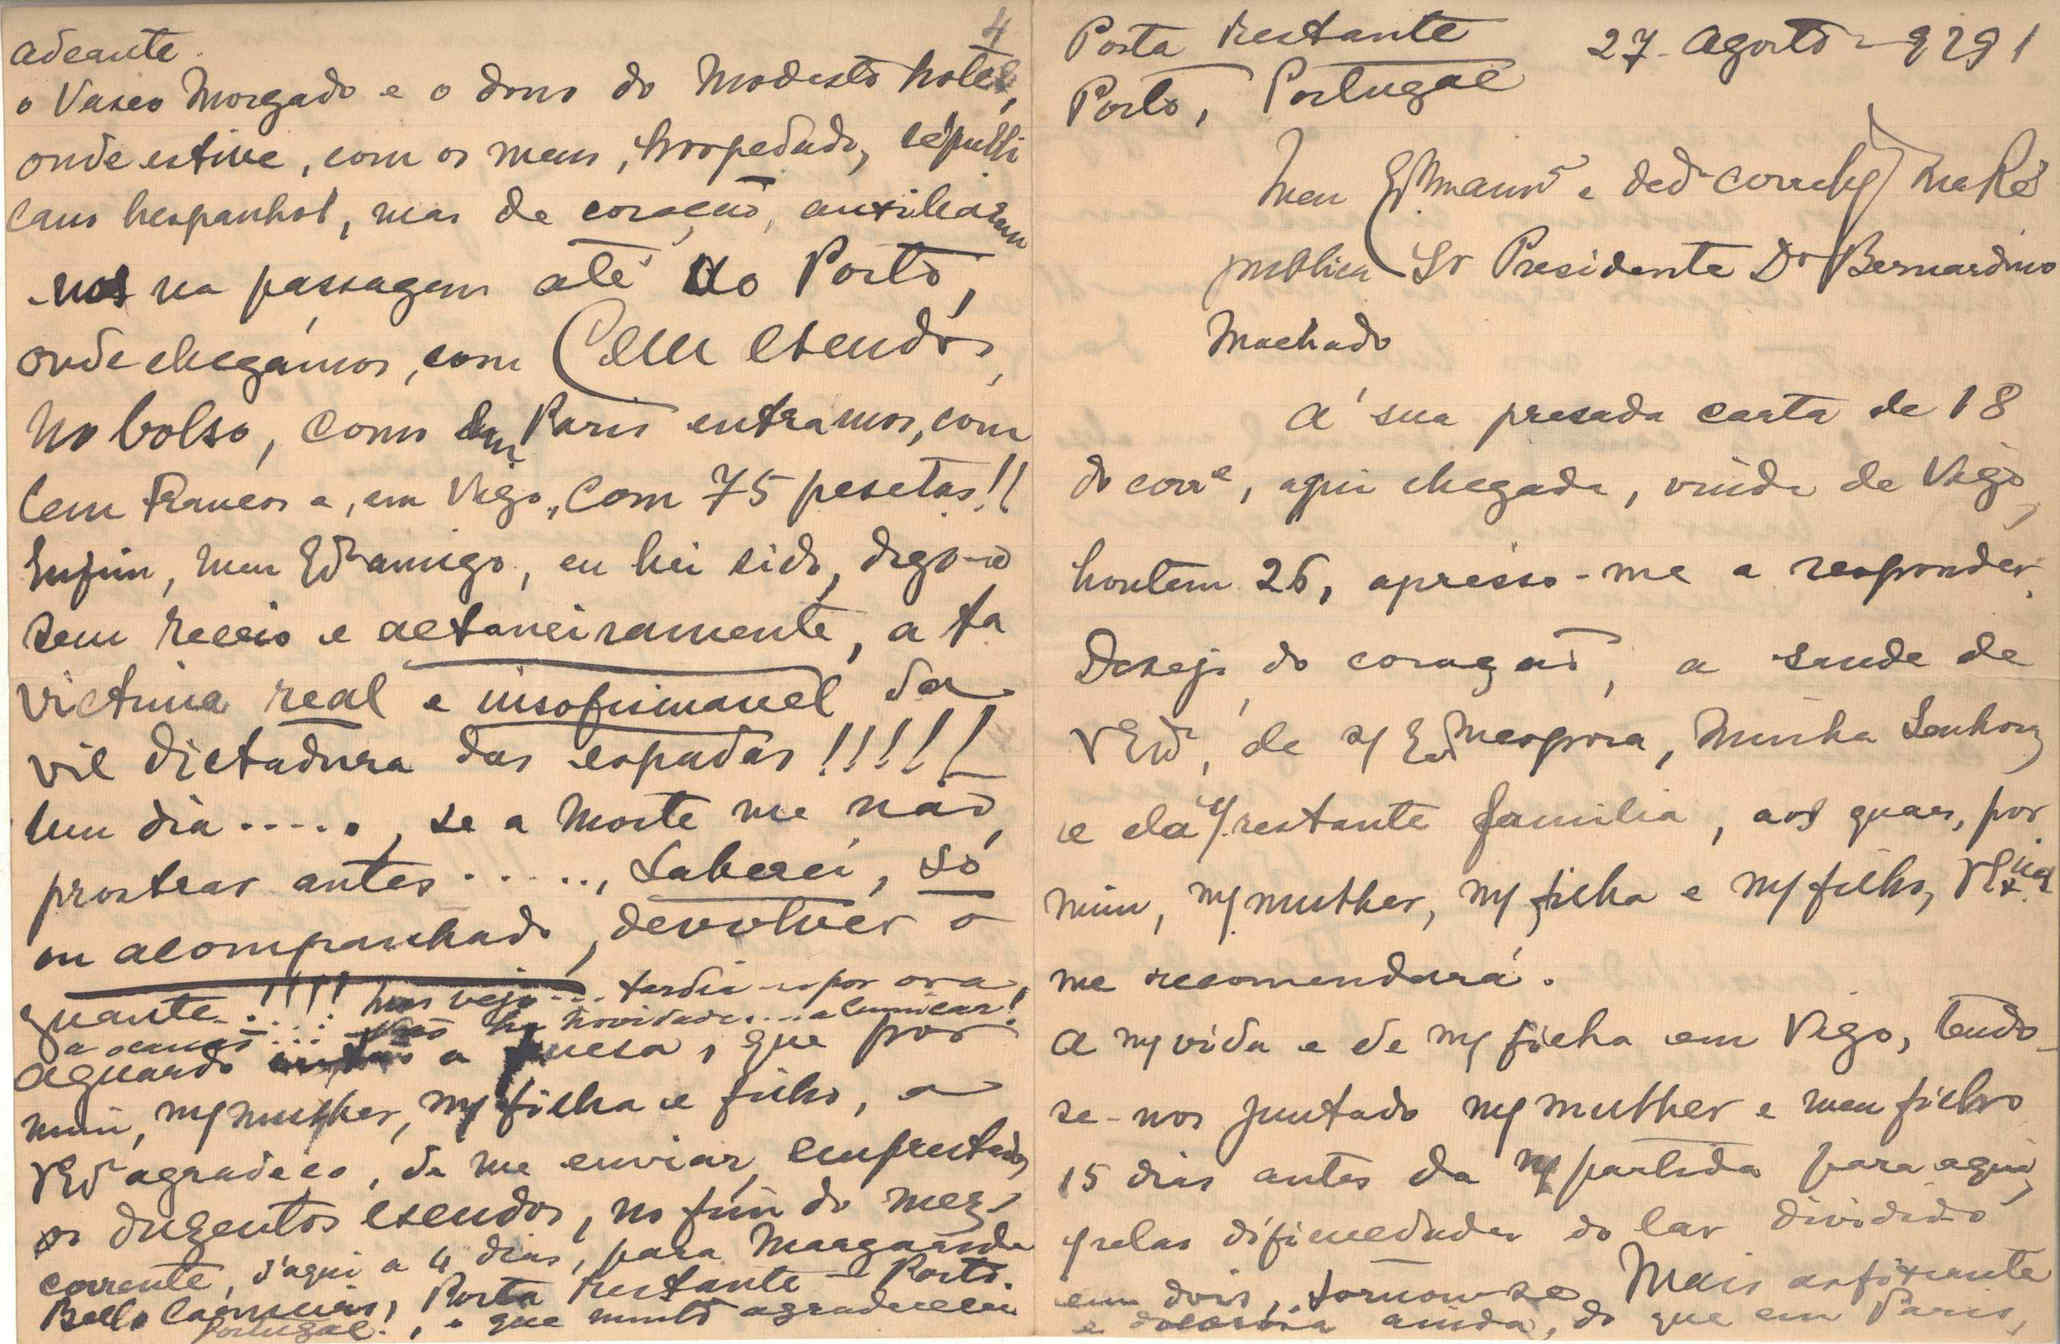 Posta Restante 27 - Agosto - 929 1
Porto, Portugal
Meu Exmo e ded correlig na Re
publica Sr Presidente Dr Bernardino
Machado
Á sua presada carta de 18
do corre, aqui chegada, vinda de Vigo,
hontem 26, apresso-me a responder.
Desejo do coração, a saude de
V Exa, de s/ Exma esposa, minha Senhora
e da restante familia, aos quaes, por
mim, m/ mulher, m/ filha e m/ filho, V Exa
me recomendará.
A m/ vida e de m/ filha em Vigo, tendo-
se-nos juntado m/ mulher e meu filho
15 dias antes da m/ partida para aqui,
pelas dificuldades do lar dividido
em dois, tornou-se mais asfixiante
e dolorosa ainda, do que em Paris,
4
adeante.
o Vasco Morgado e o dono do modesto hotel,
onde estive, com os meus, hospedado, republi
cano hespanhol, mas de coração, auxiliaram
-nos na passagem até ao Porto,
onde chegámos, com Cem escudos,
no bolso, como em Paris entramos, com
cem francos e, em Vigo, com 75 pesetas!!
Enfim, meu Exmo amigo, eu hei sido, digo-o
sem receio e altaneiramente, a 1a
victima real e insofismavel da
vil dictadura das espadas !!!!!
Um dia ....., se a morte me não
prostrar antes ....., Saberei, só
ou acompanhado, devolver o
guante..!!!! Mas vejo... tardia - por ora,
não ha novidade.... a comunicar!
Aguardo a fineza, que por
mim, m/ mulher, m/ filha e filho, a
V Exa agradeço, de me enviar, emprestados,
os duzentos escudos, no fim do mez
corrente, d'aqui a 4 dias, para Margarida
Bello Posta Restante - Porto.
Portugal., o que muito agradecerei